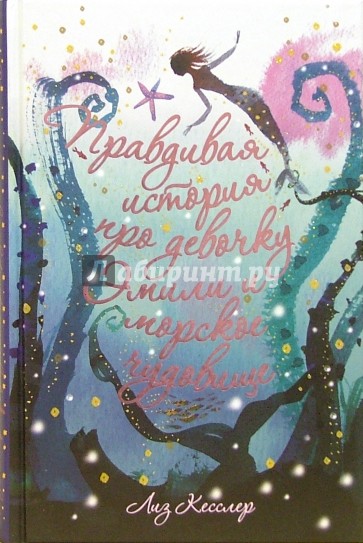 Правдивая
история
про девочку
Эмили и
морское
чудовище
Лабиринт.ру
Лиз Кесслер